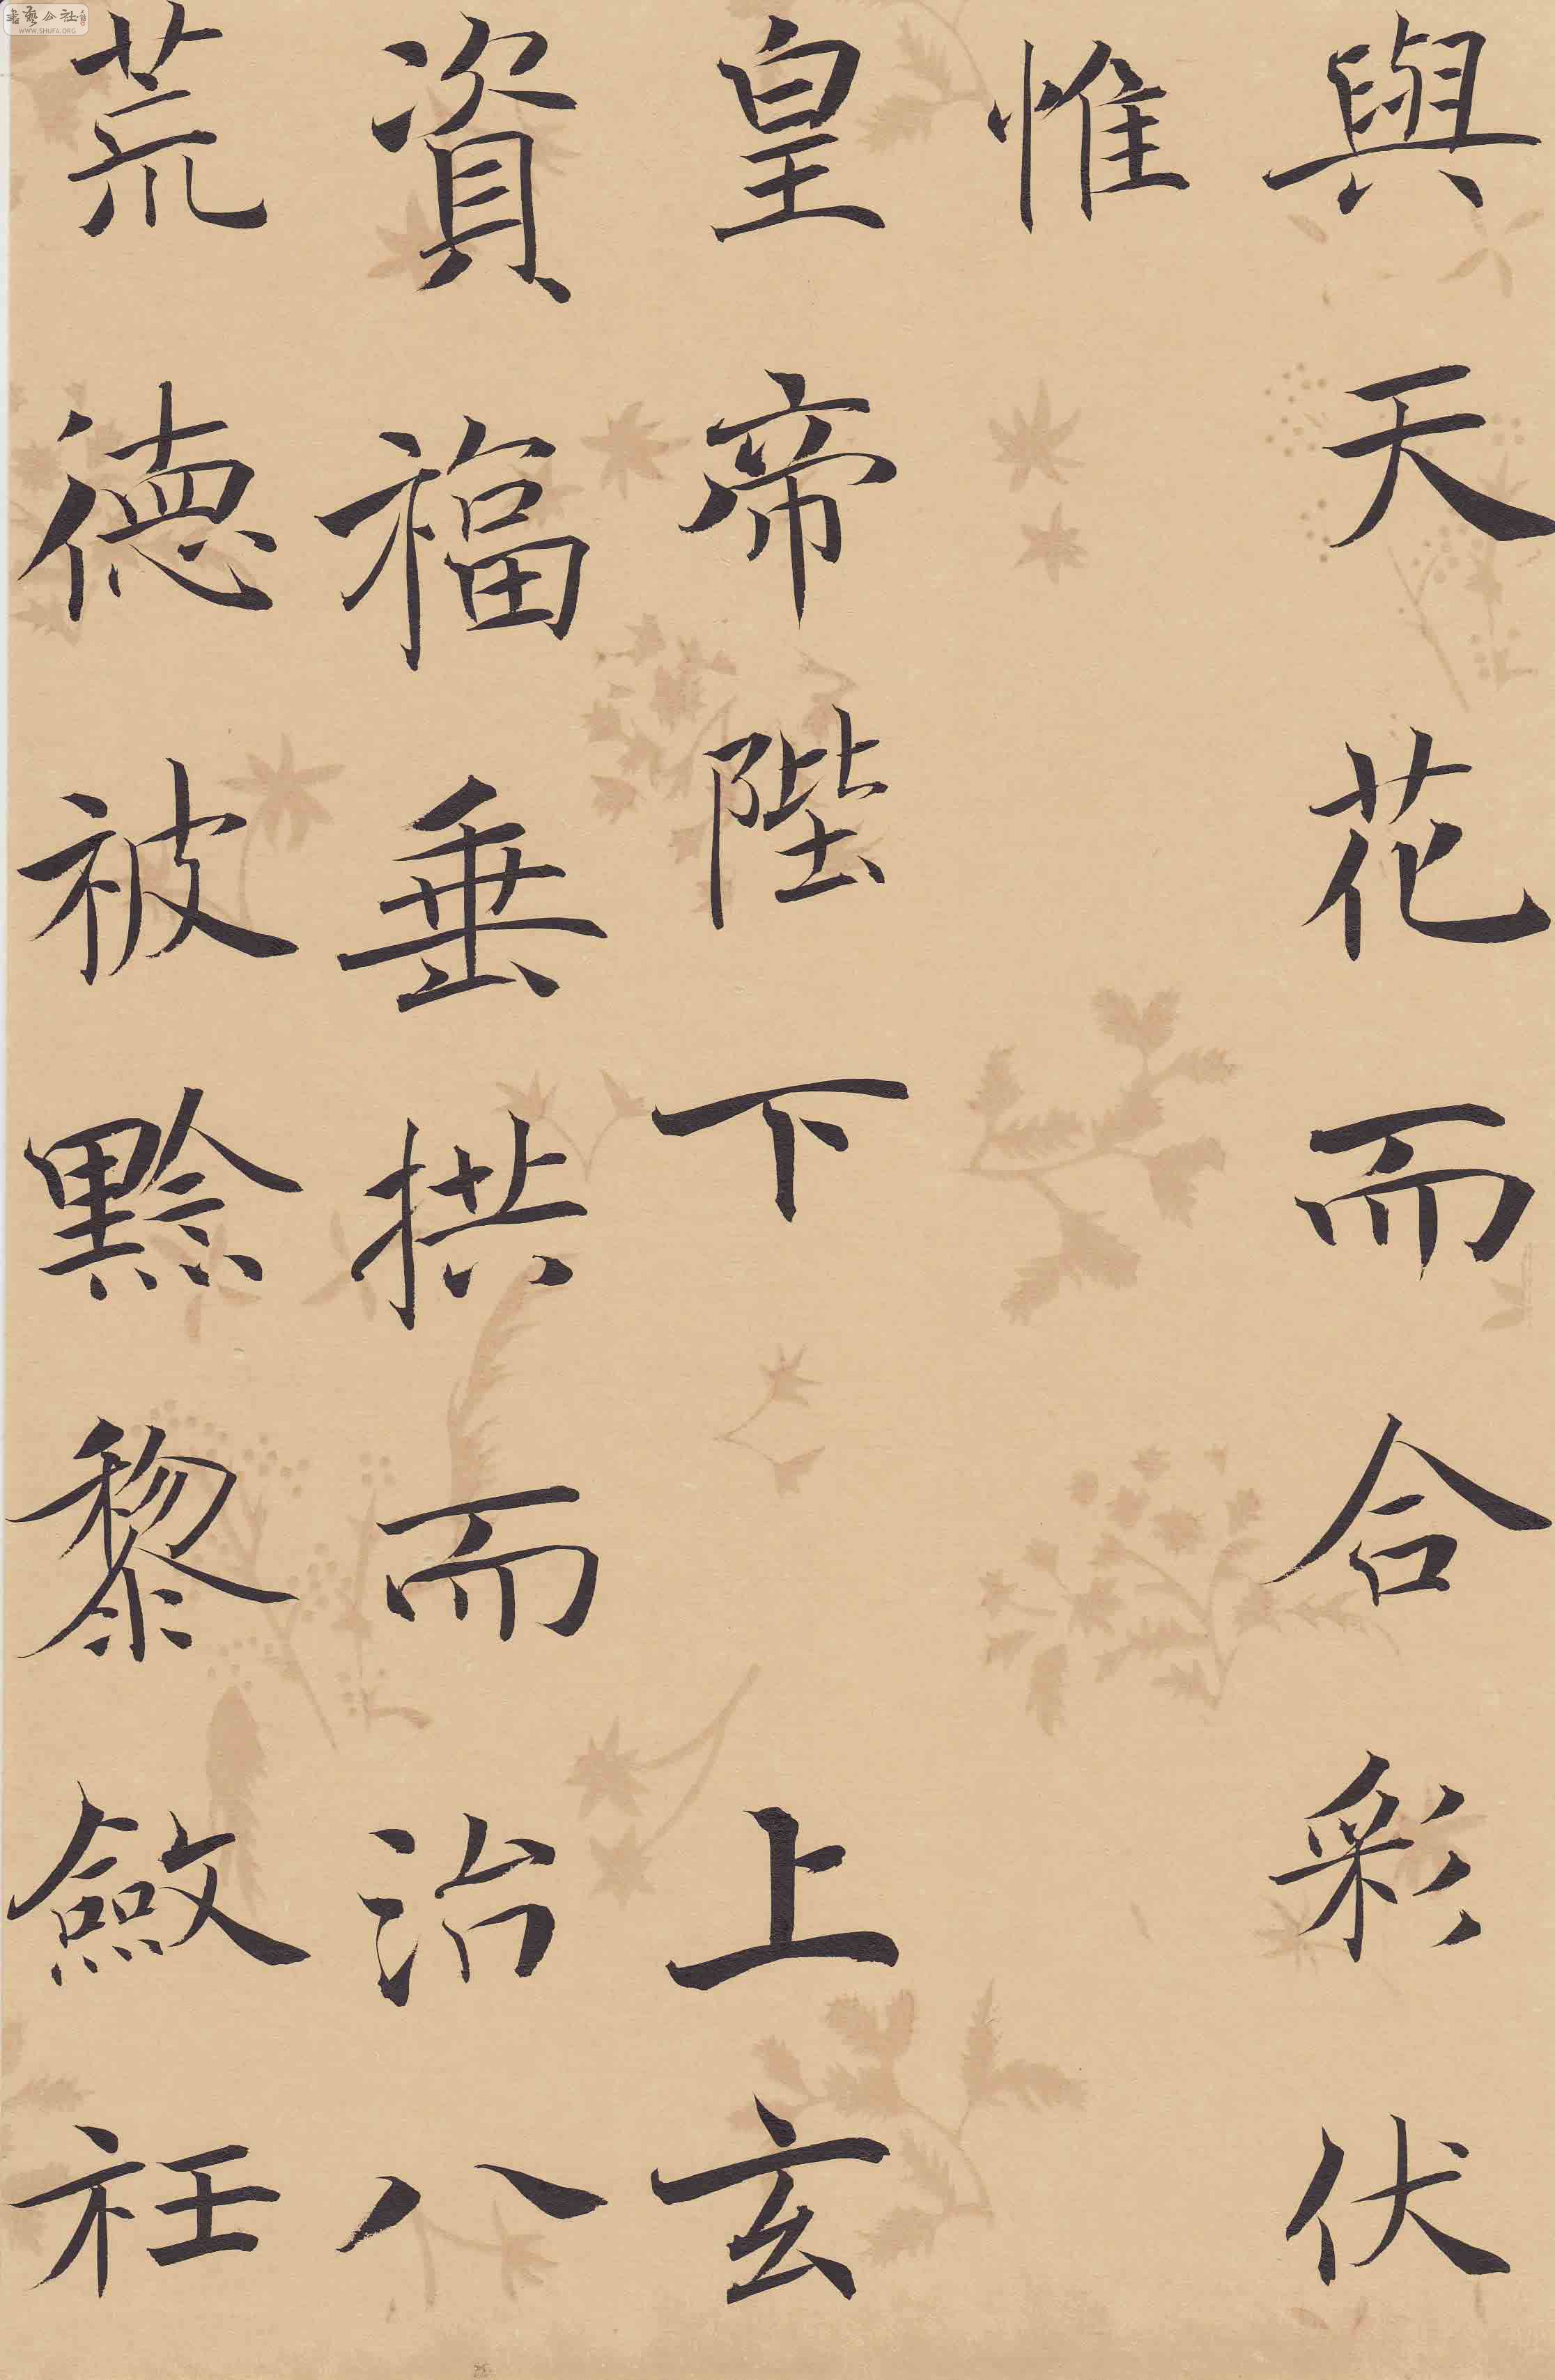 與天花而合彩伏
惟
皇帝陛下 上玄
資福垂拱而治八
荒德被黔黎斂衽
WWW.SHUFA.ORG